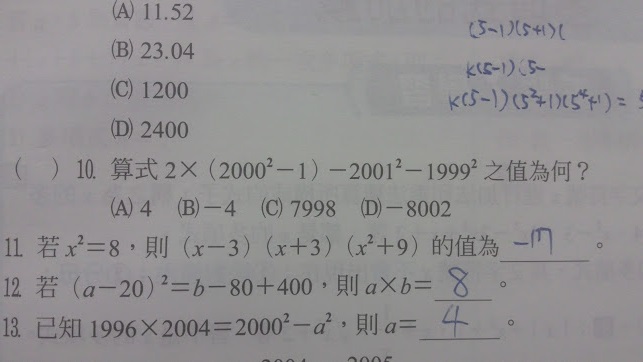 (A) 11.52
(5-1)(5+1)(
(B) 23.04
k(5-1)(5-
(C) 1200
k(5-1)(5²+1)(5⁴+1)=
(D) 2400
(  ) 10. 算式2×(2000²-1)-2001²-1999²之值為何?
(A) 4 (B)-4 (C) 7998 (D)-8002
11. 若x²=8,則(x-3)(x+3)(x²+9)的值為 -17 。
12. 若(a-20)²=b-80+400,則a×b= 8 。
13. 已知1996×2004=2000²-a²,則a= 4 。